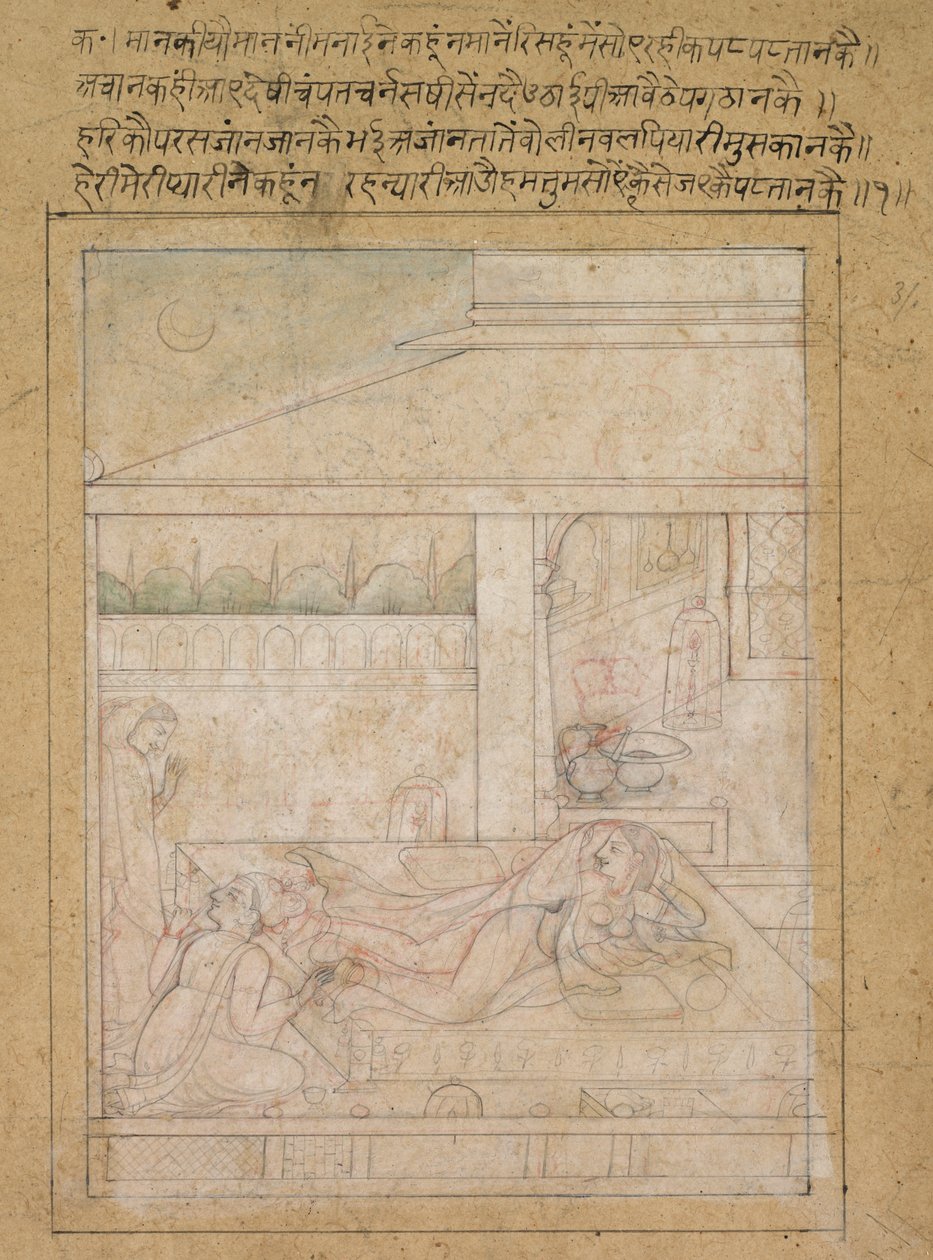 क॰। मानकीयौमाननींमनाईनेकहूंनमानैंरिसहूंमैंसौएरहीकपटपटतानकै॥
अचानकहींआएदेषीचंपतचर्नसषीसैंनदैउठाईपीआबैठेपगठानकै॥
हरिकौपरसजांनजानकैभईअजांनतातेंबोलीनवलपियारीमुसकानकै॥
हेरीमेरीप्यारीनेकहूंन रहन्यारीआऔहमतुमसोएंकैसेजएकैपटतानकै॥१॥